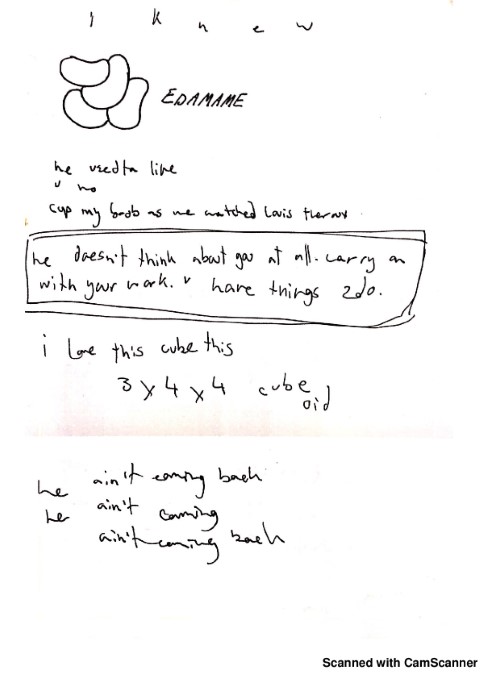 I knew
EDAMAME
he used to like
u no
cup my boob as we watched Louis theroux
he doesn't think about you at all. carry on
with your work. u have things 2do.
i love this cube this
3 x 4 x 4 cube
oid
he ain't coming back
he ain't coming
ain't coming back
Scanned with CamScanner